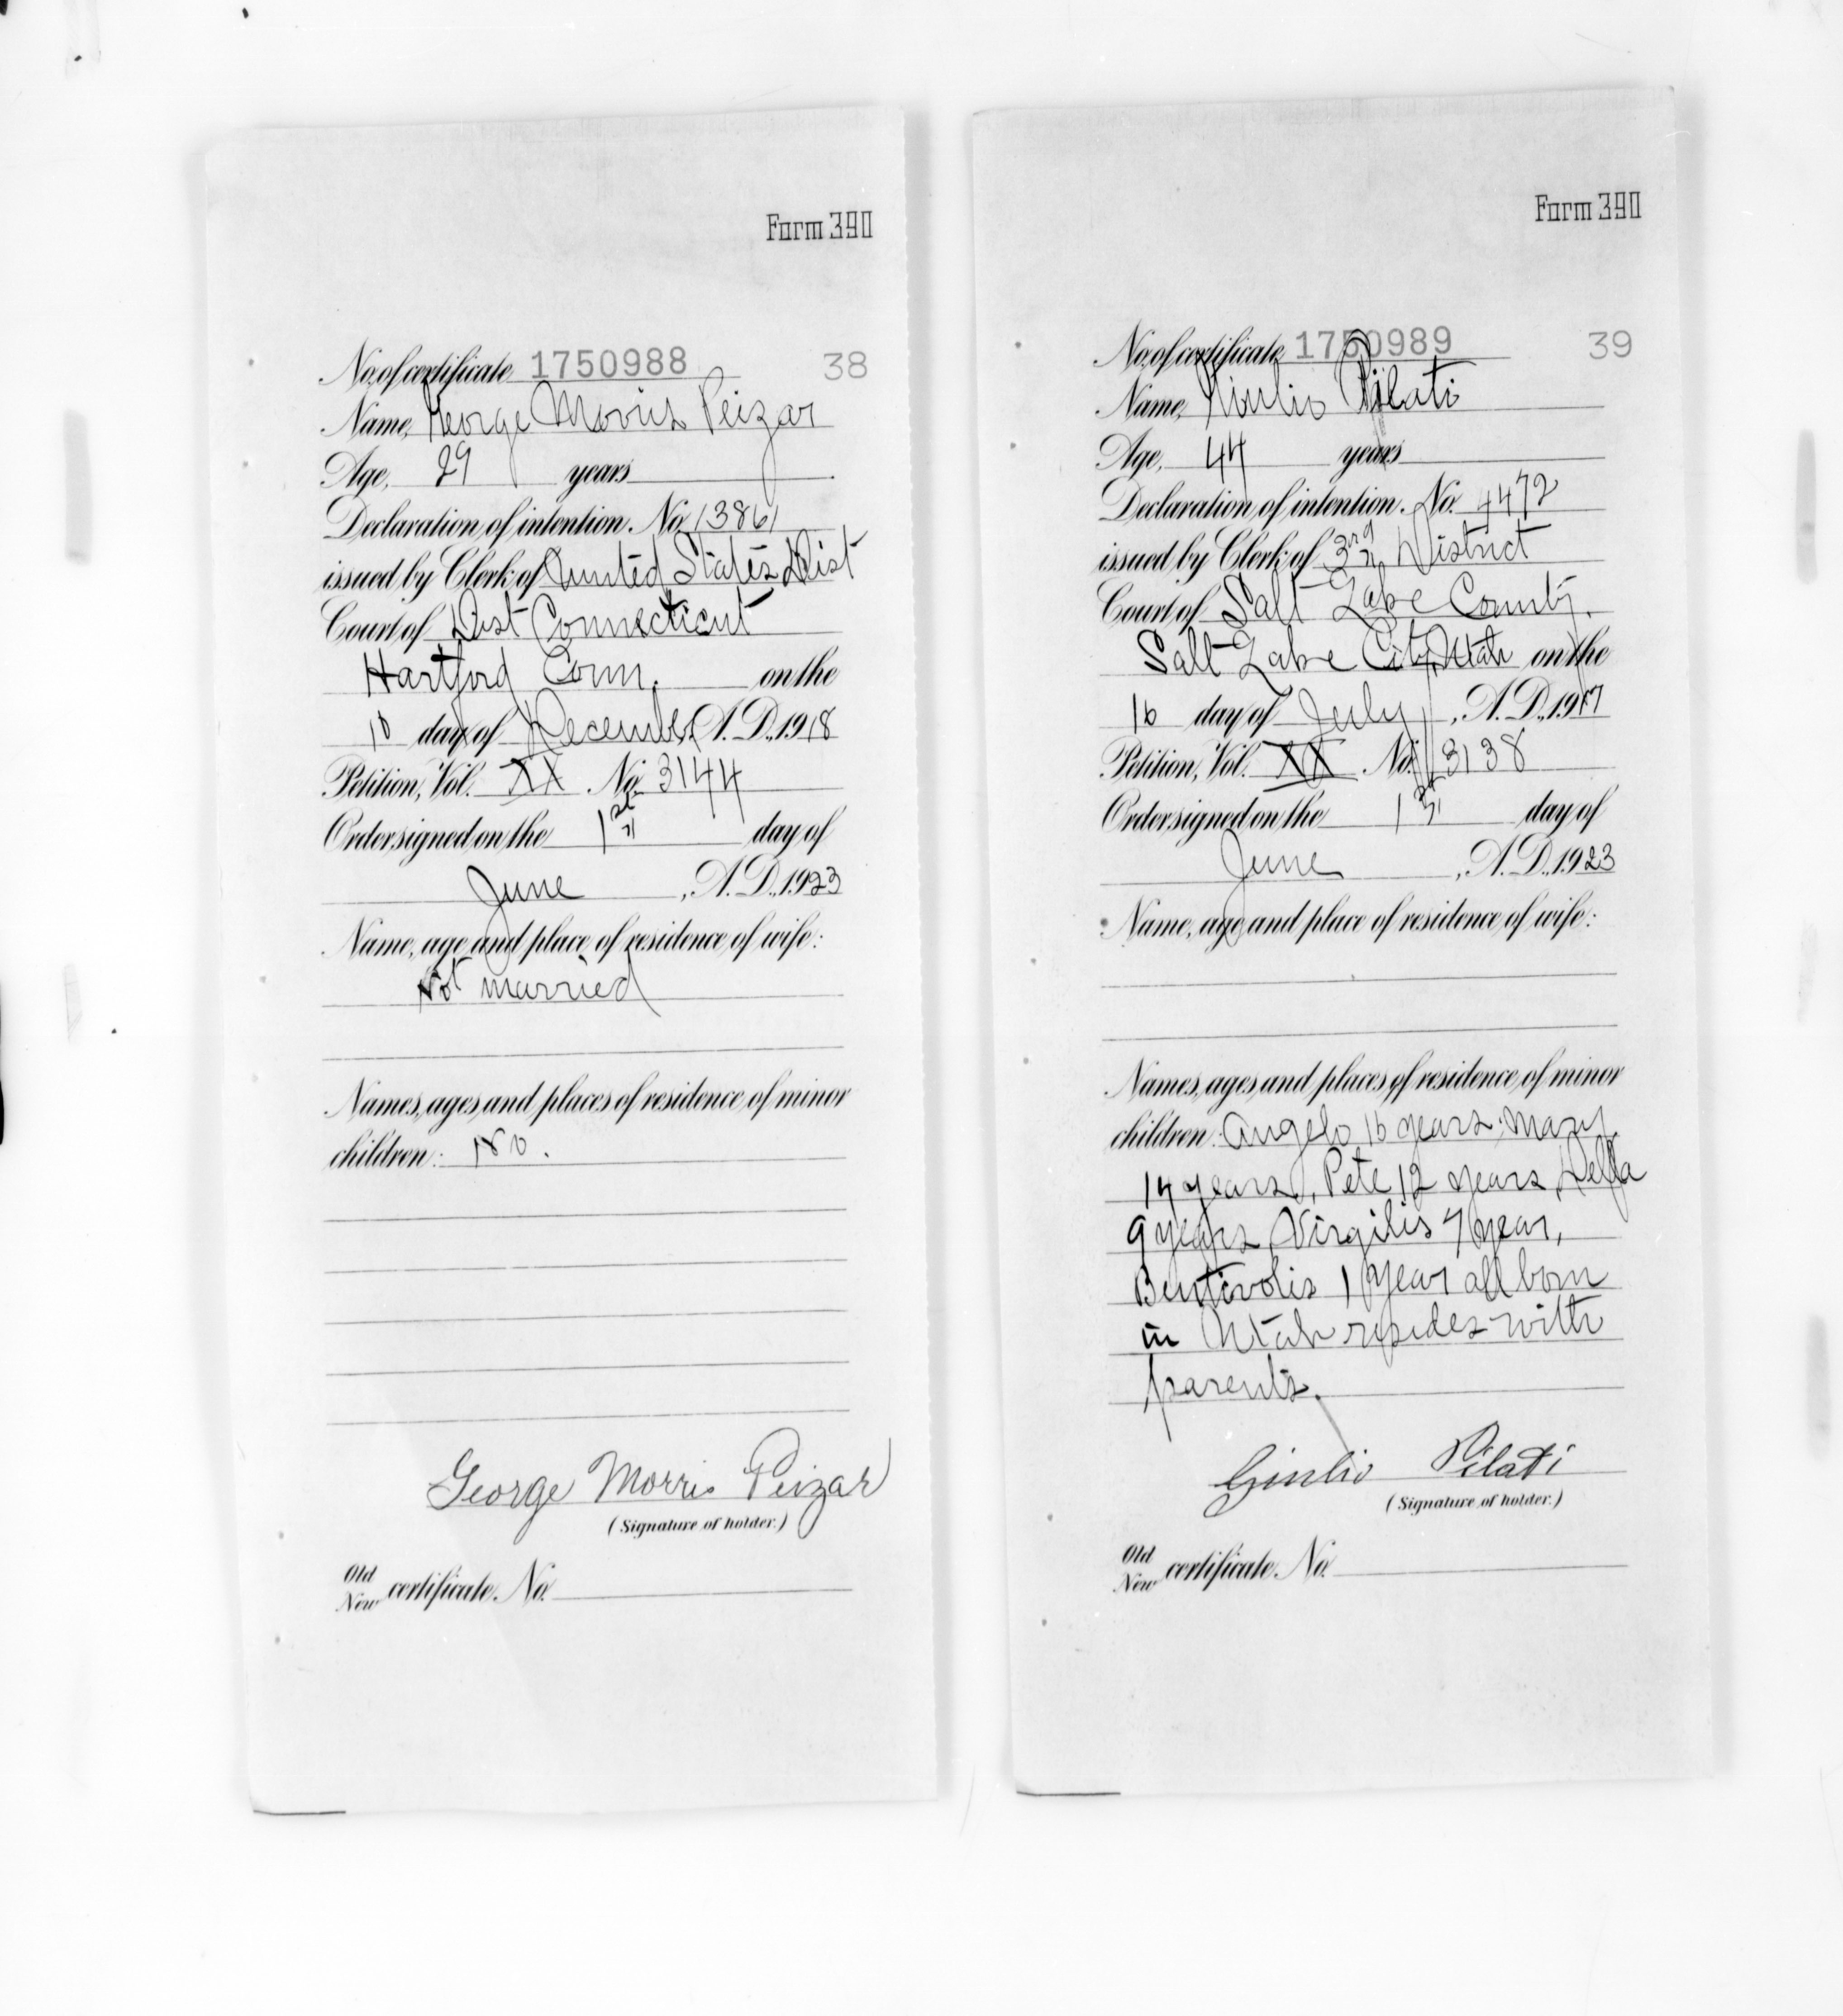 Form 390
No. of certificate 1750988 38
Name, George Morris Peizar
Age, 29 years
Declaration of intention No. 13861
issued by Clerk of United States Dist
Court of Dist Connecticut
Hartford Conn. on the
10 day of December, A.D., 1918
Petition, Vol. XX No. 3144
Order signed on the 1st day of
June, A.D., 1923
Name, age and place of residence of wife:
Not married
Names, ages and places of residence of minor
children: No.
George Morris Peizar
(Signature of holder.)
Old
New certificate No.
Form 390
No. of certificate 1750989 39
Name, Giulio Pilati
Age, 44 years
Declaration of intention No. 4472
issued by Clerk of 3rd District
Court of Salt Lake County,
Salt Lake City, Utah on the
16 day of July, A.D., 1917
Petition, Vol. XX No. 3138
Order signed on the 1st day of
June, A.D., 1923
Name, age and place of residence of wife:
Names, ages and places of residence of minor
children: Angelo 16 years; Mary
14 years, Pete 12 years,
9 years, Virgilis year,
Bentivolis 1 year all born
in Utah resides with
parents.
Giulio Pilati
(Signature of holder.)
Old
New certificate No.